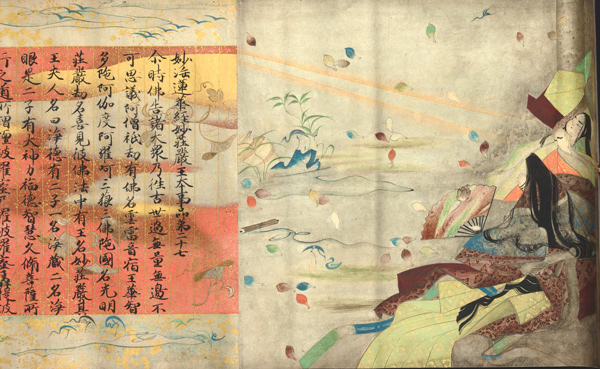 妙法蓮華經妙莊嚴王本事品第二十七
尒時佛告諸大衆乃往古世過無量無邊不
可思議阿僧祇劫有佛名雲雷音宿王華智
多陀阿伽度阿羅呵三藐三佛陀國名光明
莊嚴劫名喜見彼佛法中有王名妙莊嚴其
王夫人名曰淨德有二子一名淨藏一名淨
眼是二子有大神力福德智慧久脩菩薩所
行之道所謂檀波羅蜜尸羅波羅蜜